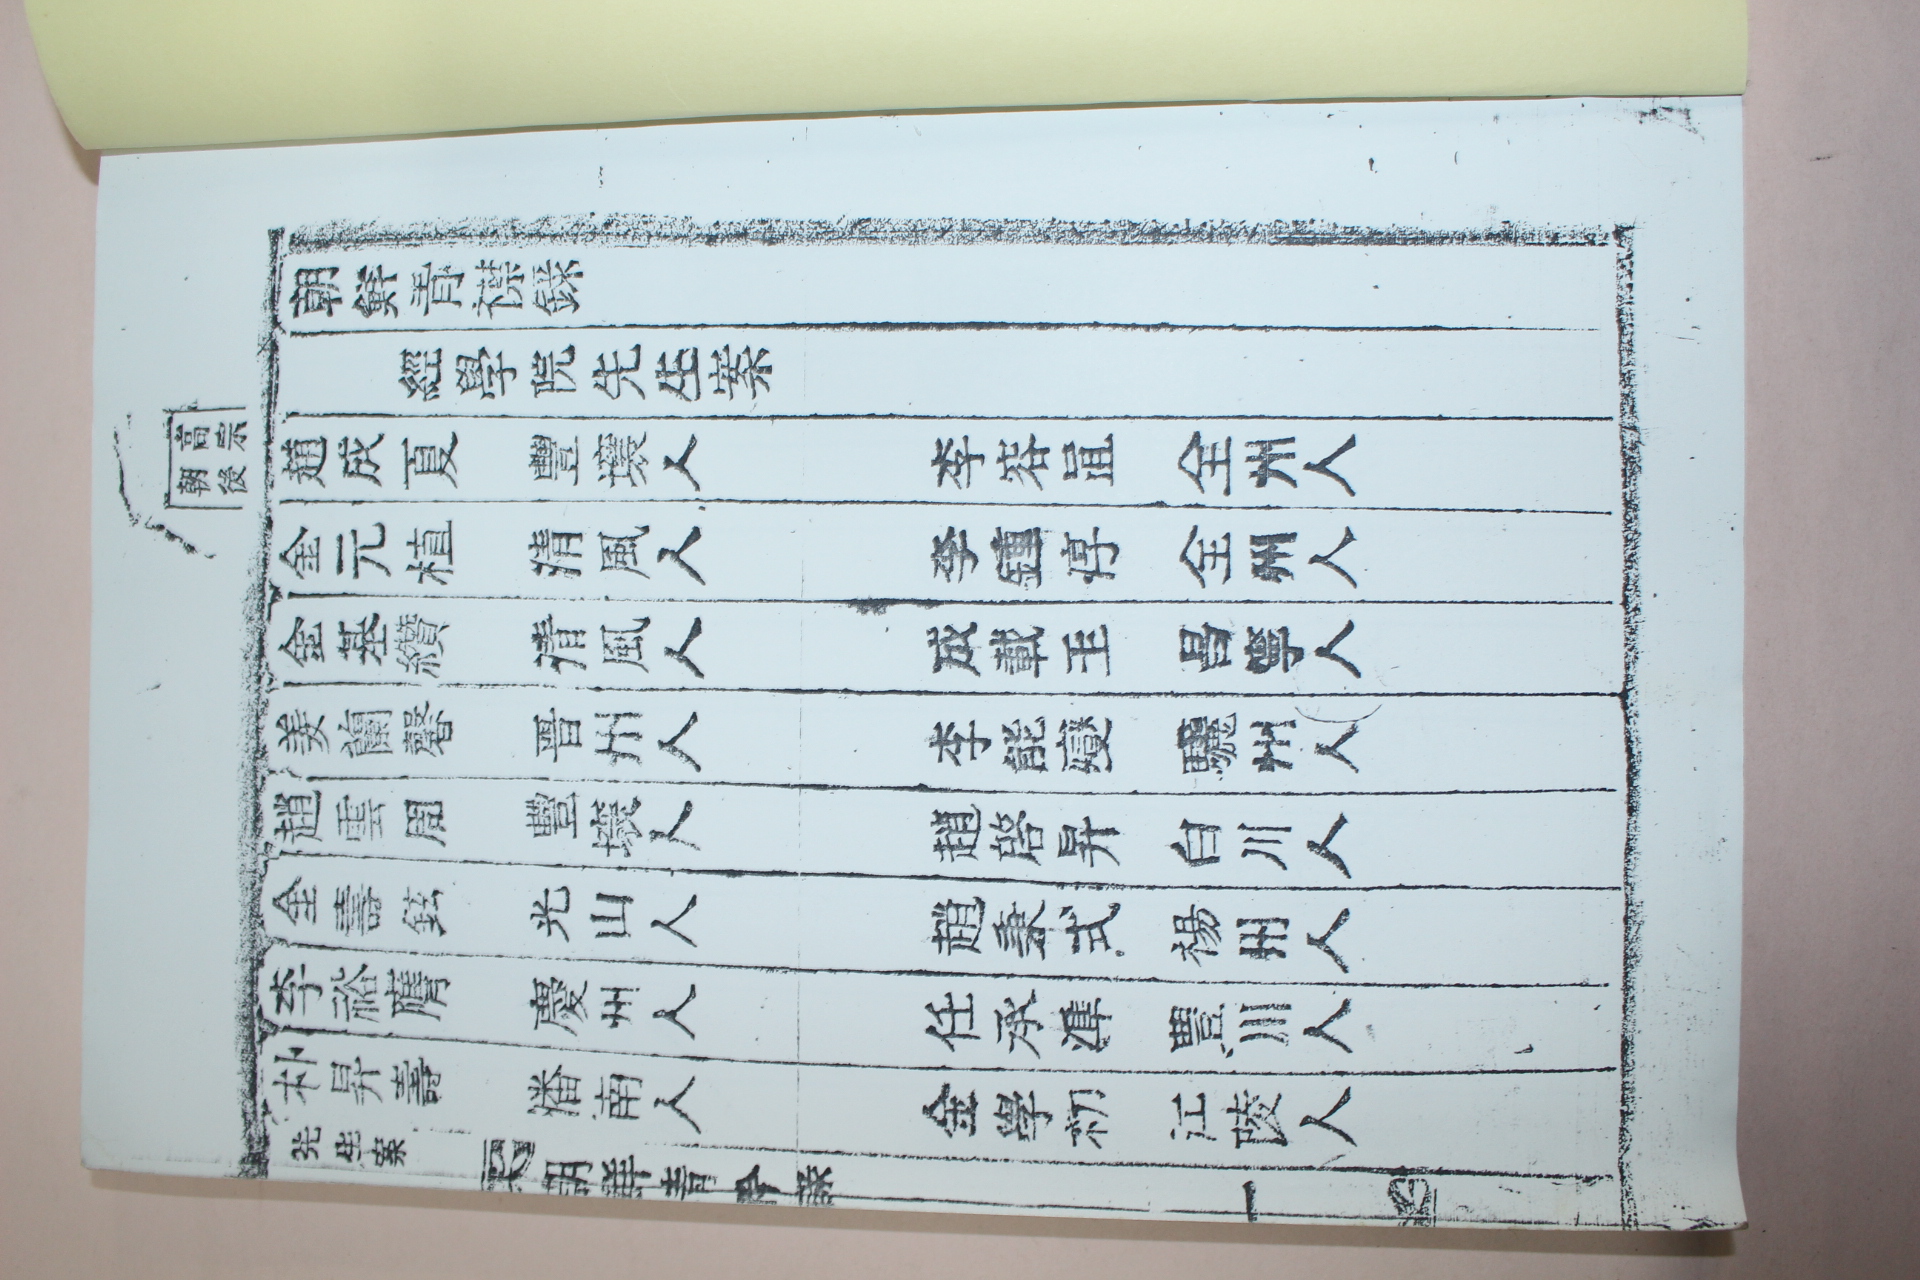 朝鮮靑襟錄
經學院先生案
高宗
朝後
趙成夏 豐壤人 李容𥁕 全州人
金元植 清風人 李鍾淳 全州人
金基纘 清風人 成載玉 昌寧人
姜蘭馨 晋州人 李能燮 驪州人
趙雲周 豐壤人 趙啓昇 白川人
金壽鉉 光山人 趙秉式 楊州人
李裕膺 慶州人 任承準 豊川人
朴昇壽 潘南人 金學初 江陵人
先生案 朝鮮靑襟錄 一